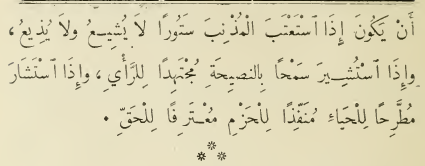 أَنْ يَكُونَ إِذَا ٱسْتَعْتَبَ الْمُذْنِبَ سَتُورًا لاَ يُشِيعُ وَلاَ يُذِيعُ،
وإِذَا ٱسْتُشِيرَ سَمْحًا بِالنصِيحَةِ مُجْتَهِدًا لِلرَّأْيِ، وإِذَا ٱسْتَشَارَ
مُطَّرِحًا لِلْحَيَاءِ مُنَفِّذًا لِلْحَزْمِ مُعْتَرِفًا لِلْحَقِّ .